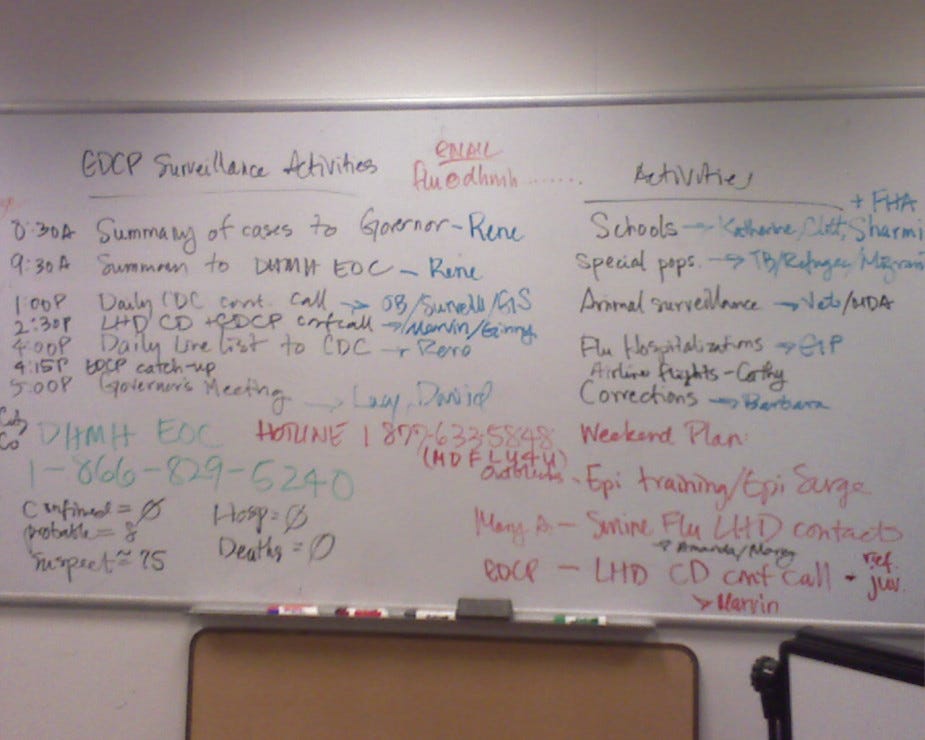 EDCP Surveillance Activities
8:30A Summary of cases to Governor - Rene
9:30A Summary to DHMH EOC - Rene
1:00P Daily CDC conf. call → OB/Surveill/GIS
2:30P LHD CD + EDCP conf call → Marvin/Ginny
4:00P Daily Line list to CDC → Rene
4:15P EDCP catch-up
5:00P Governor's Meeting → Lucy, David
DHMH EOC
1-866-829-5240
Confirmed = Ø
Probable = 8
Suspect ≈ 75
Hosp = Ø
Deaths = Ø
EMAIL
flu@dhmh........
HOTLINE 1 877-633-5848
(MD FLU4U)
Activities
+ FHA
Schools → Katherine, Sharmi
Special pops. → TB/Refugee/Migrant
Animal surveillance → Vets/MDA
Flu Hospitalizations → EIP
Airline flights - Cathy
Corrections → Barbara
Weekend Plan:
Outbreaks - Epi training/Epi Surge
Mary A. - Swine Flu LHD contacts
→ Amanda/Mary
EDCP - LHD CD conf call -
→ Marvin